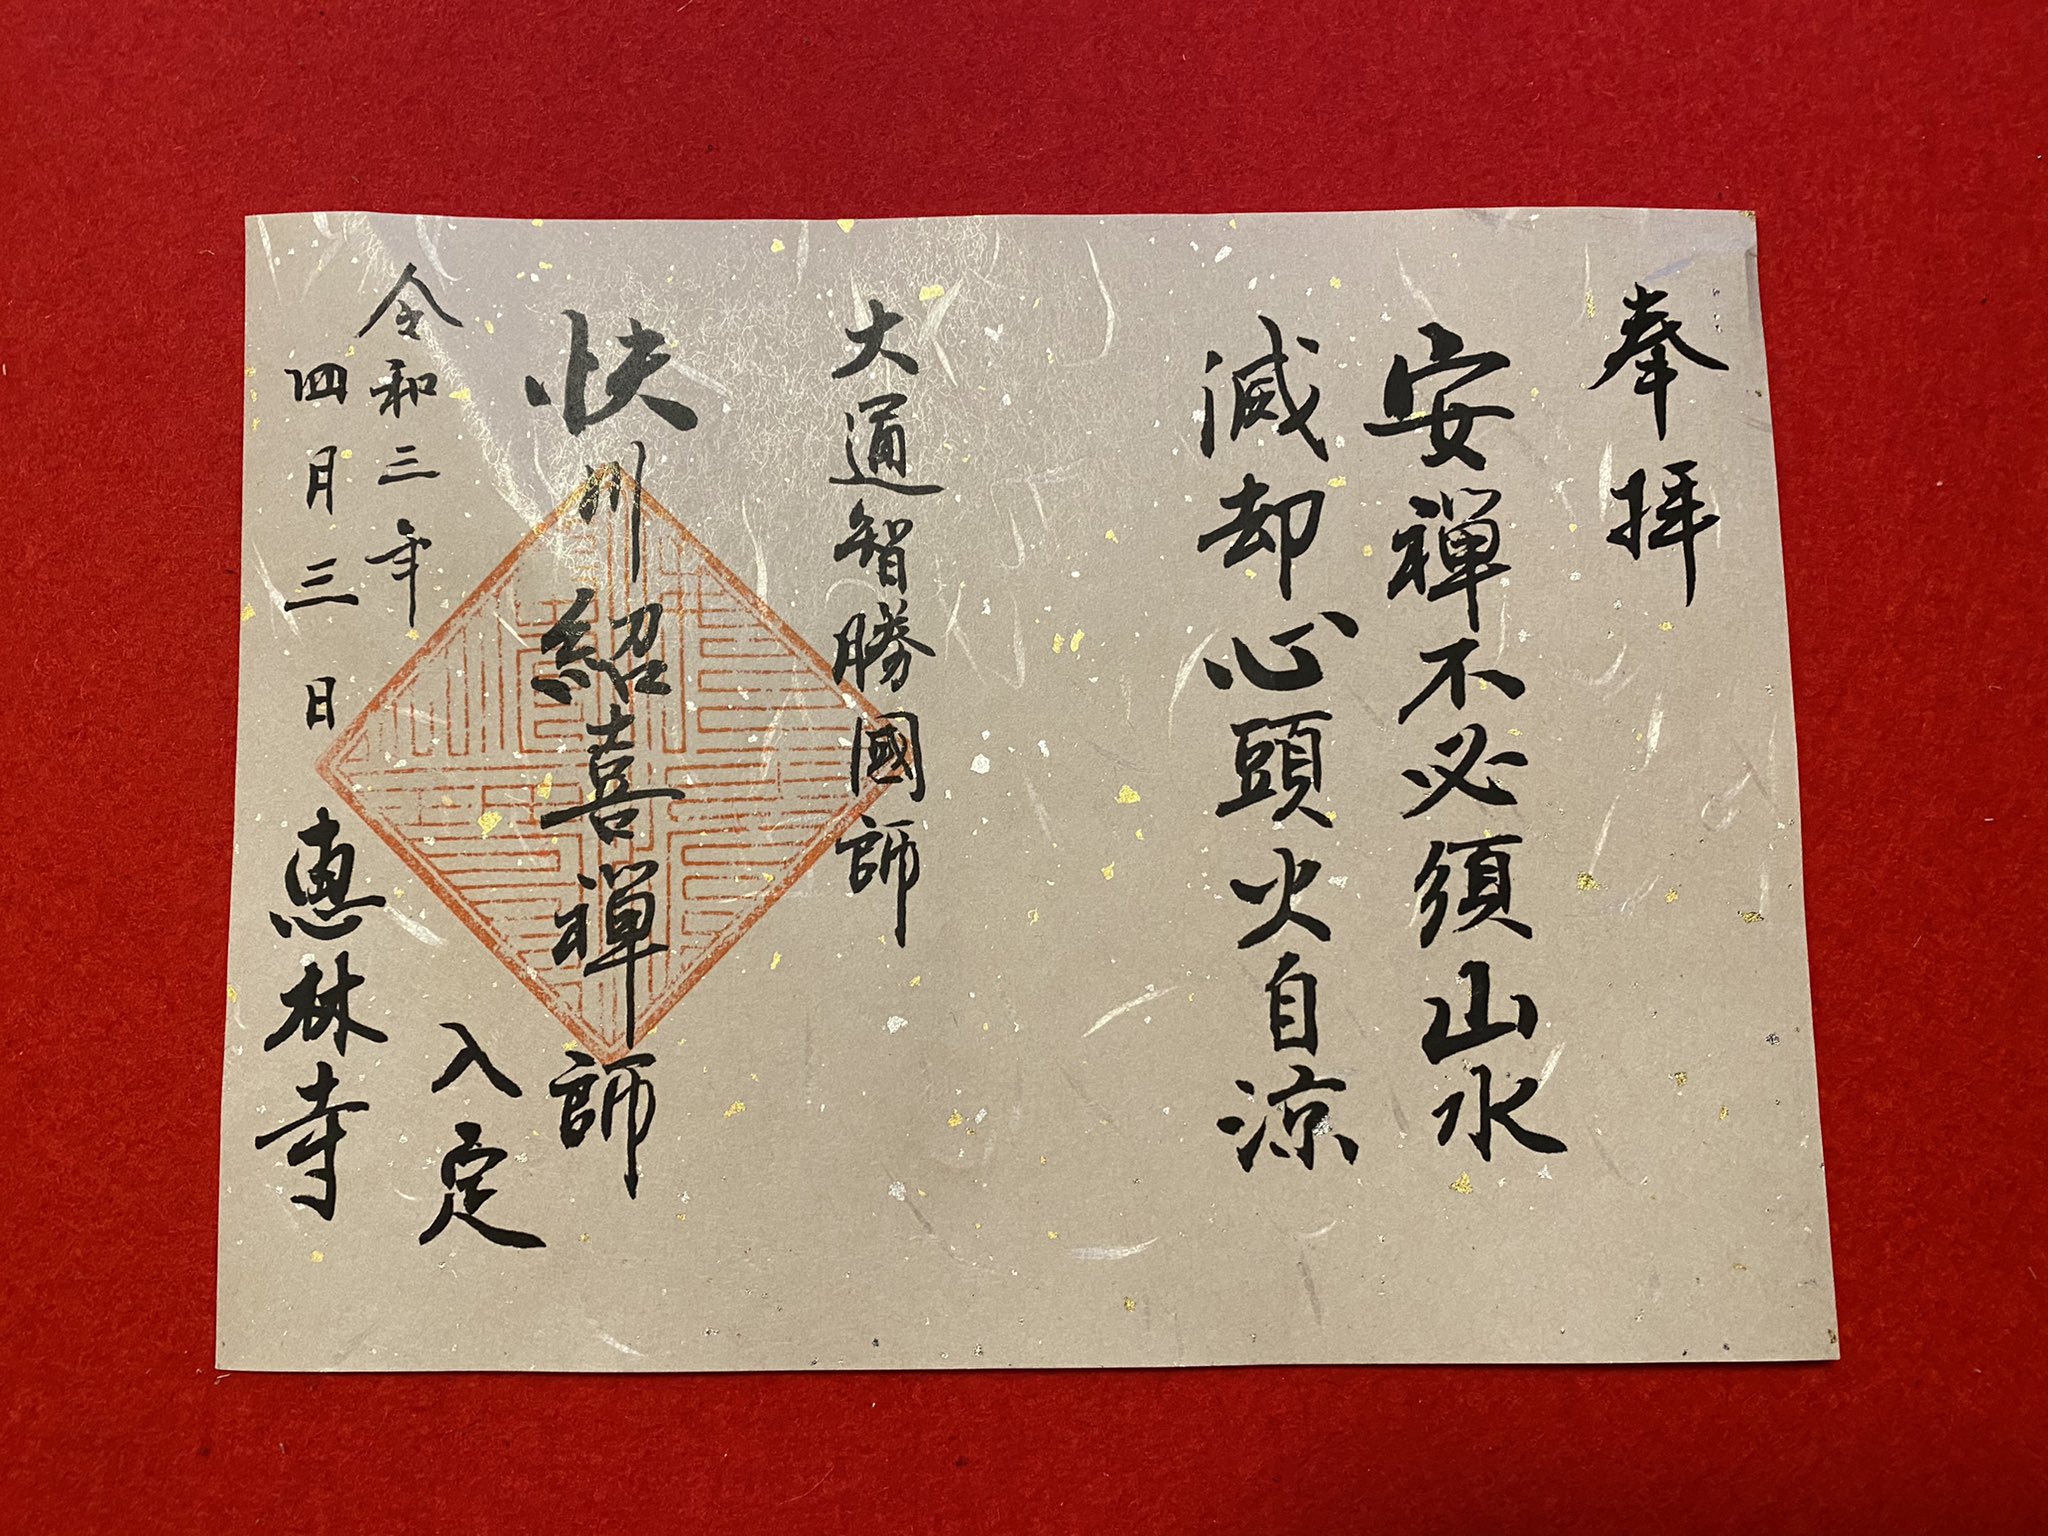 奉拝
安禅不必須山水
滅却心頭火自涼
大通智勝國師
快川紹喜禅師
入定
令和三年
四月三日
恵林寺